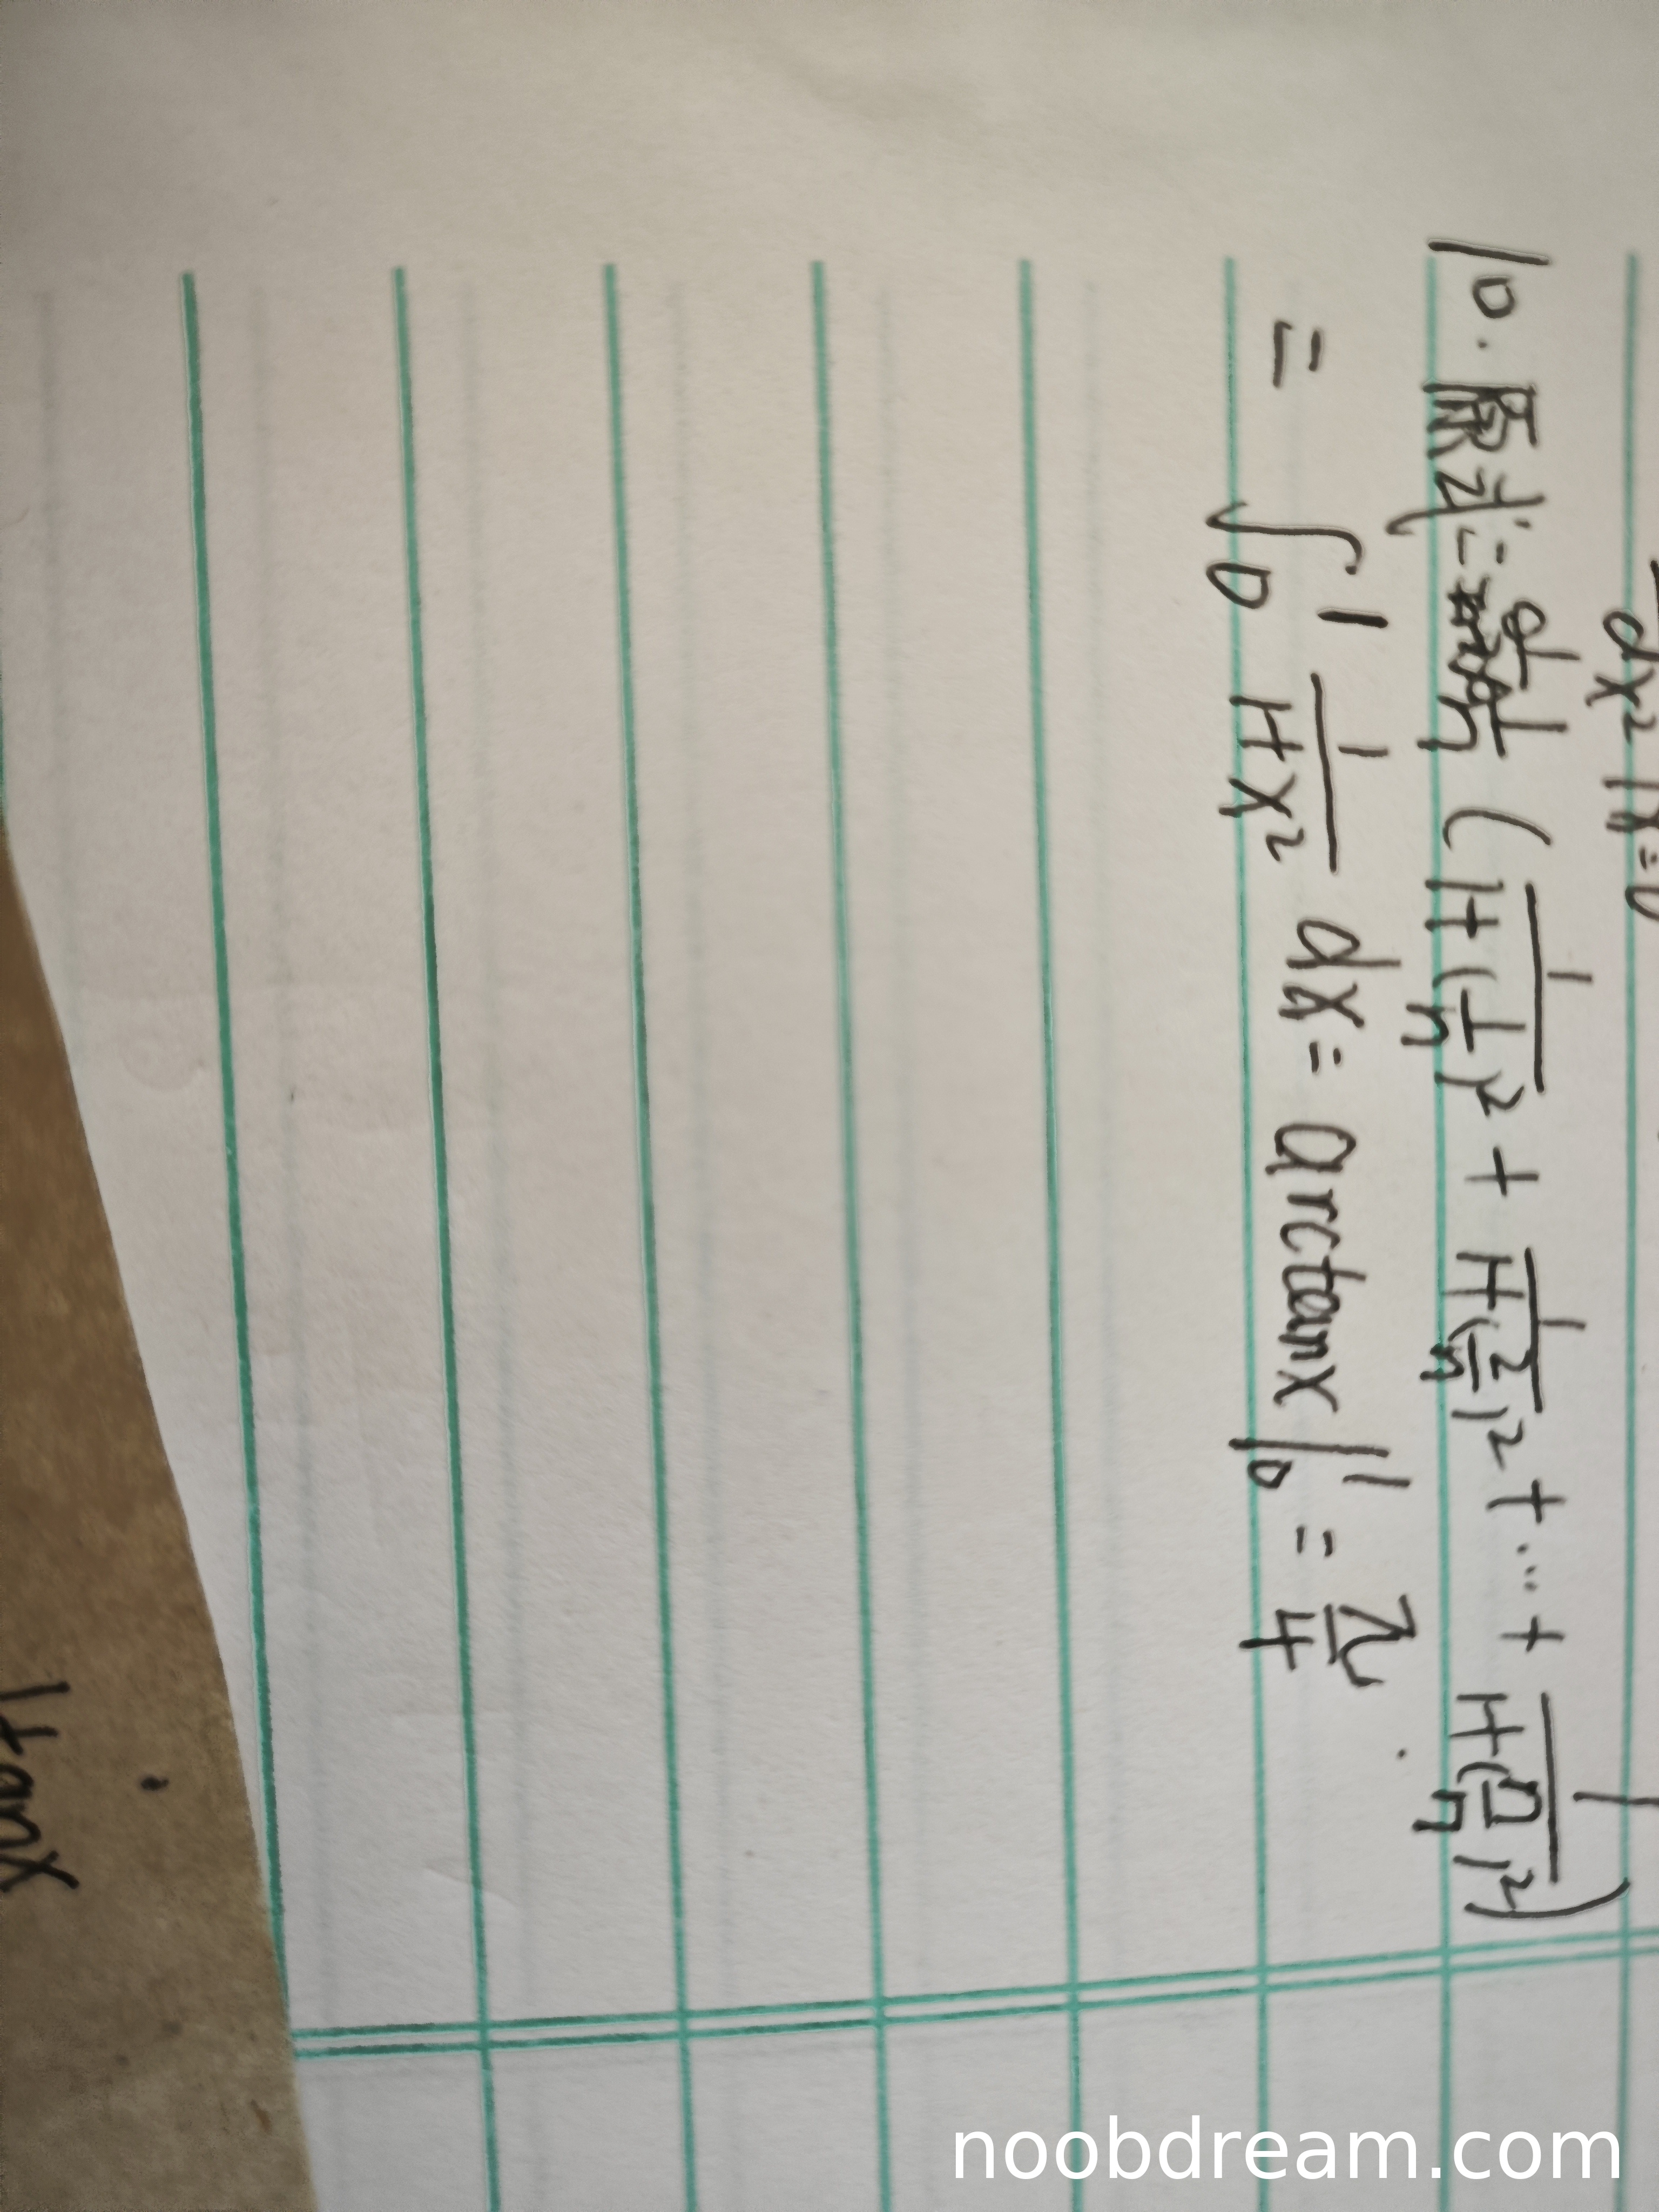 dx² |x=0
10. 原式= 1/n ( 1/(1+(1/n)²) + 1/(1+(2/n)²) + ... + 1/(1+(n/n)²) )
= ∫₀¹ 1/(1+x²) dx = arctanx |₀¹ = π/4 .
1+anx
noobdream.com